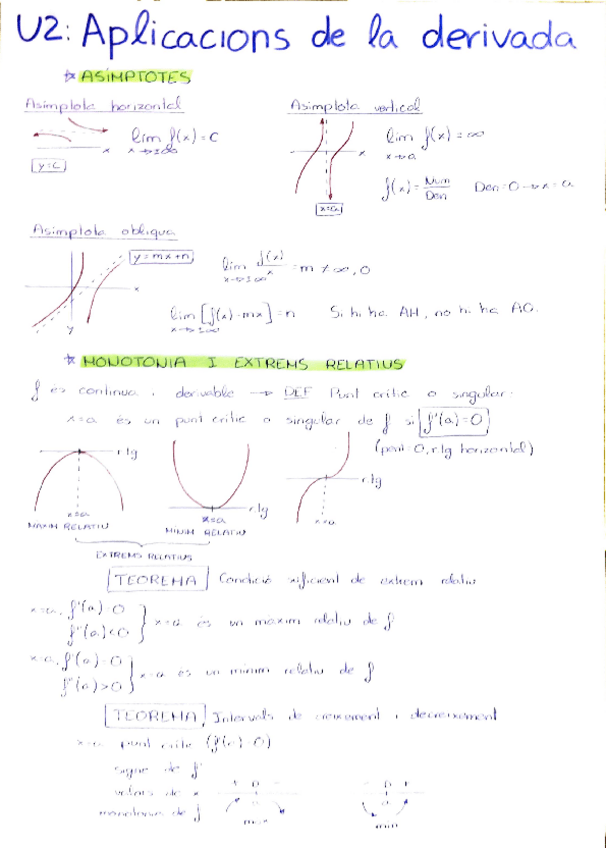 U2: Aplicacions de la derivada
* ASÍMPTOTES
Asímptota horizontal
lim f(x) = c
x→±∞
x
y=c
Asímptota vertical
lim f(x) = ∞
x→a
x
f(x) = Num/Den Den=0 → x=a
x=a
Asímptota obliqua
y=mx+n
lim f(x)/x = m ≠ ∞, 0
x→±∞
x
lim [f(x)-mx] = n Si hi ha AH, no hi ha AO.
x→±∞
y
* MONOTONIA I EXTREMS RELATIUS
f és contínua i derivable → DEF Punt crític o singular.
x=a és un punt crític o singular de f si f'(a)=0
(pend. 0, r.tg horizontal)
r.tg
x=a
MÀXIM RELATIU
x=a
r.tg
MÍNIM RELATIU
r.tg
x=a
EXTREMS RELATIUS
TEOREMA Condició suficient de extrem relatiu
x=a, f'(a)=0
f''(a)<0 } x=a és un màxim relatiu de f
x=a, f'(a)=0
f''(a)>0 } x=a és un mínim relatiu de f
TEOREMA Intervals de creixement i decreixement
x=a punt crític (f'(a)=0)
signe de f'
valors de x
monotonia de f
+ 0 -
a
max
- 0 +
a
min